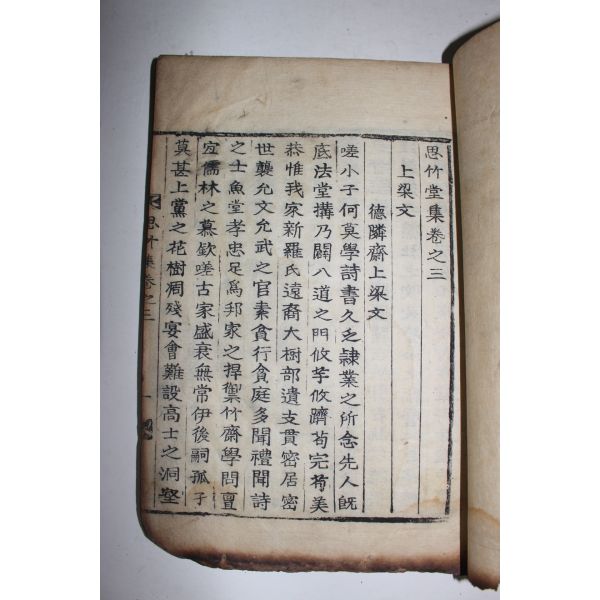 思竹堂集卷之三
上梁文
德隣齋上梁文
嗟小子何莫學詩書久乏隷業之所念先人旣
底法堂搆乃闢八道之門攸芋攸躋苟完苟美
恭惟我家新羅氏遠裔大樹部遺支貫密居密
世襲允文允武之官素貪行貪庭多聞禮聞詩
之士魚堂孝忠足爲邦家之捍禦竹齋學問亶
宜儒林之慕欽嗟古家盛衰無常伊後嗣孤孑
莫甚上黨之花樹凋殘宴會難設高士之洞壑
思竹集卷之三
一